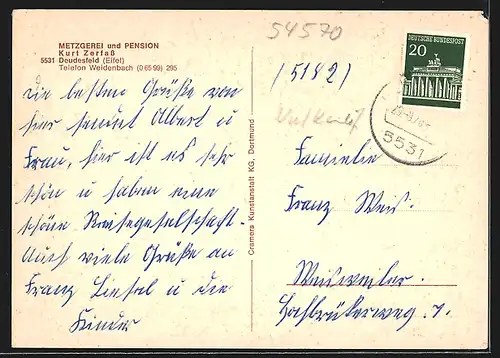 METZGEREI und PENSION
Kurt Zerfaß
5531 Deudesfeld (Eifel)
Telefon Weidenbach (06599) 295
Die besten Grüße von
hier sendet Albert u
Frau, hier ist es sehr
schön u haben eine
schöne Reisegesellschaft.
Auch viele Grüße an
Franz Liesel u die
Kinder
Cramers Kunstanstalt KG, Dortmund
54570
(5182)
DEUTSCHE BUNDESPOST
20
5531
Familie
Franz Weis.
Weisweiler.
Hochbrükerweg 7.